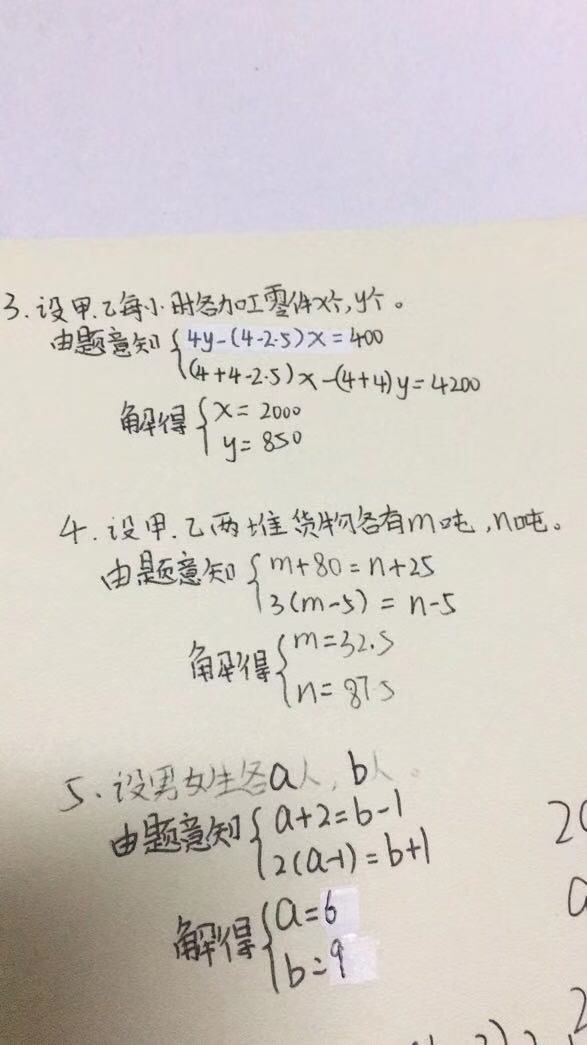 3.设甲.乙每小时各加工零件x个,y个。
由题意知{4y-(4-2.5)x=400
(4+4-2.5)x-(4+4)y=4200
解得{x=2000
y=850
4.设甲.乙两堆货物各有m吨,n吨。
由题意知{m+80=n+25
3(m-5)=n-5
解得{m=32.5
n=87.5
5.设男女生各a人,b人。
由题意知{a+2=b-1
2(a-1)=b+1
解得{a=6
b=9